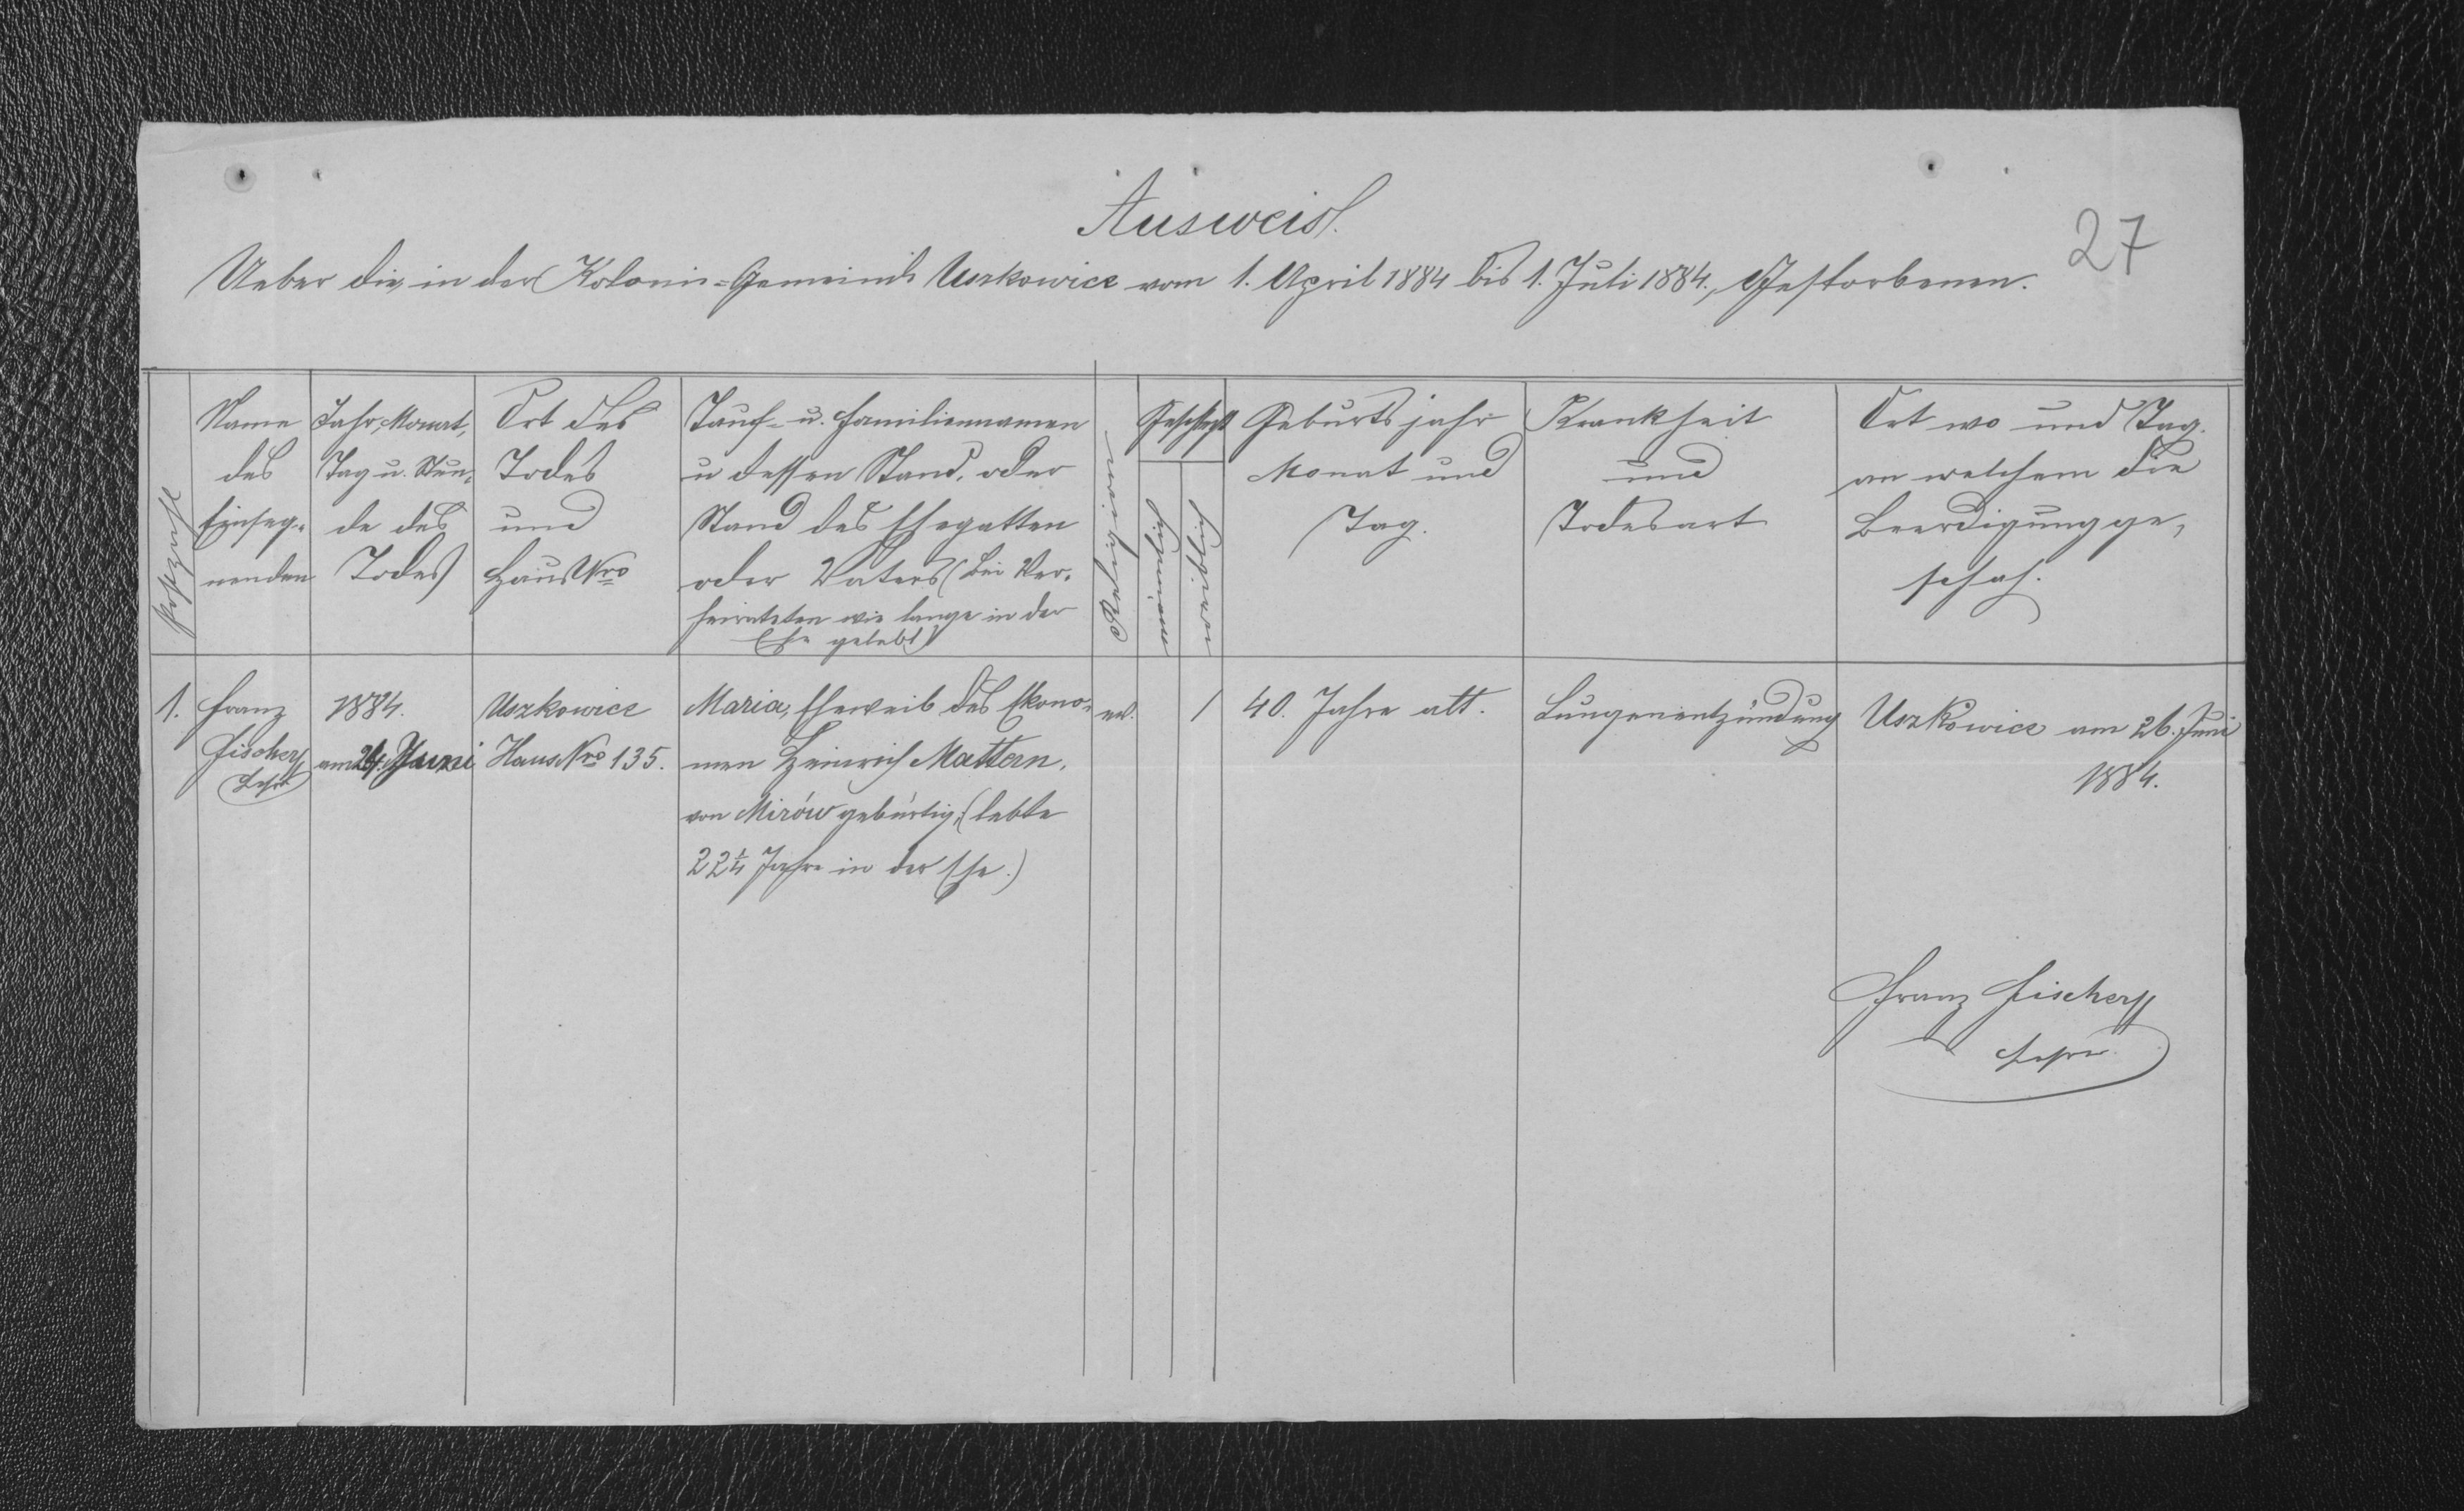 Ausweis.
27
Ueber die, in der Kolonie-Gemeinde Uszkowice vom 1. April 1884 bis 1. Juli 1884., Gestorbenen.
Postzahl
Name
des
Einseg-
nenden
Jahr, Monat,
Tag u. Stun-
de des
Todes
Ort des
Todes
und
Haus Nro
Tauf- u. Familiennamen
u dessen Stand, oder
Stand des Ehegatten
oder Vaters (bei Ver-
heirateten wie lange in der
Ehe gelebt)
Religion
Geschlecht
männlich
weiblich
Geburtsjahr
Monat und
Tag.
Krankheit
und
Todesart
Ort wo und Tag
an welchem die
Beerdigung ge-
schah.
1.
Franz
Fischer
Lehrer
1884.
am 24. Juni
Uszkowice
Haus Nro 135.
Maria, Eheweib des Ekono-
men Heinrich Mattern,
von Mirów gebürtig, (lebte
22 1/4 Jahre in der Ehe.)
ev.
1
40. Jahre alt.
Lungenentzündung
Uszkowice am 26. Juni
1884.
Franz Fischer
Lehrer